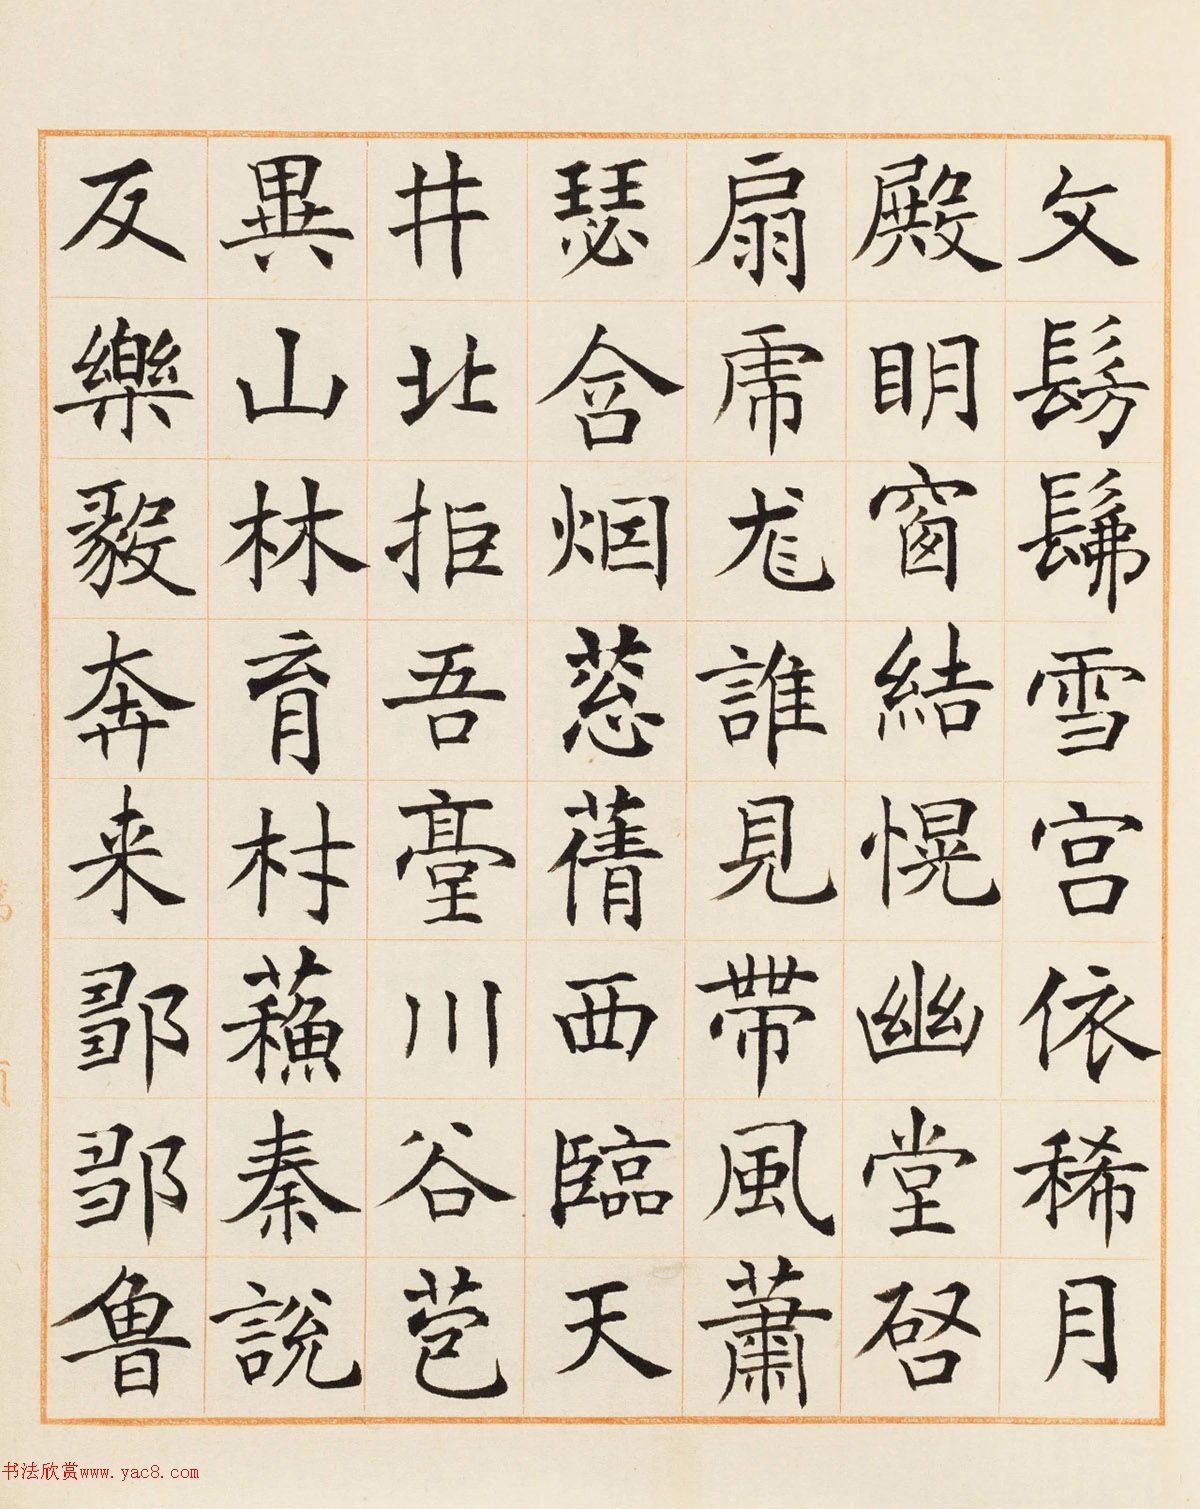 文髣髴雪宫依稀月
殿明窗結幌幽堂啓
扇虍尨誰見帶風蕭
瑟含烟蒽蒨西臨天
井北拒吾臺川谷苞
異山林育材蘓秦說
反樂毅奔来鄙鄒魯
书法欣赏www.yac8.com